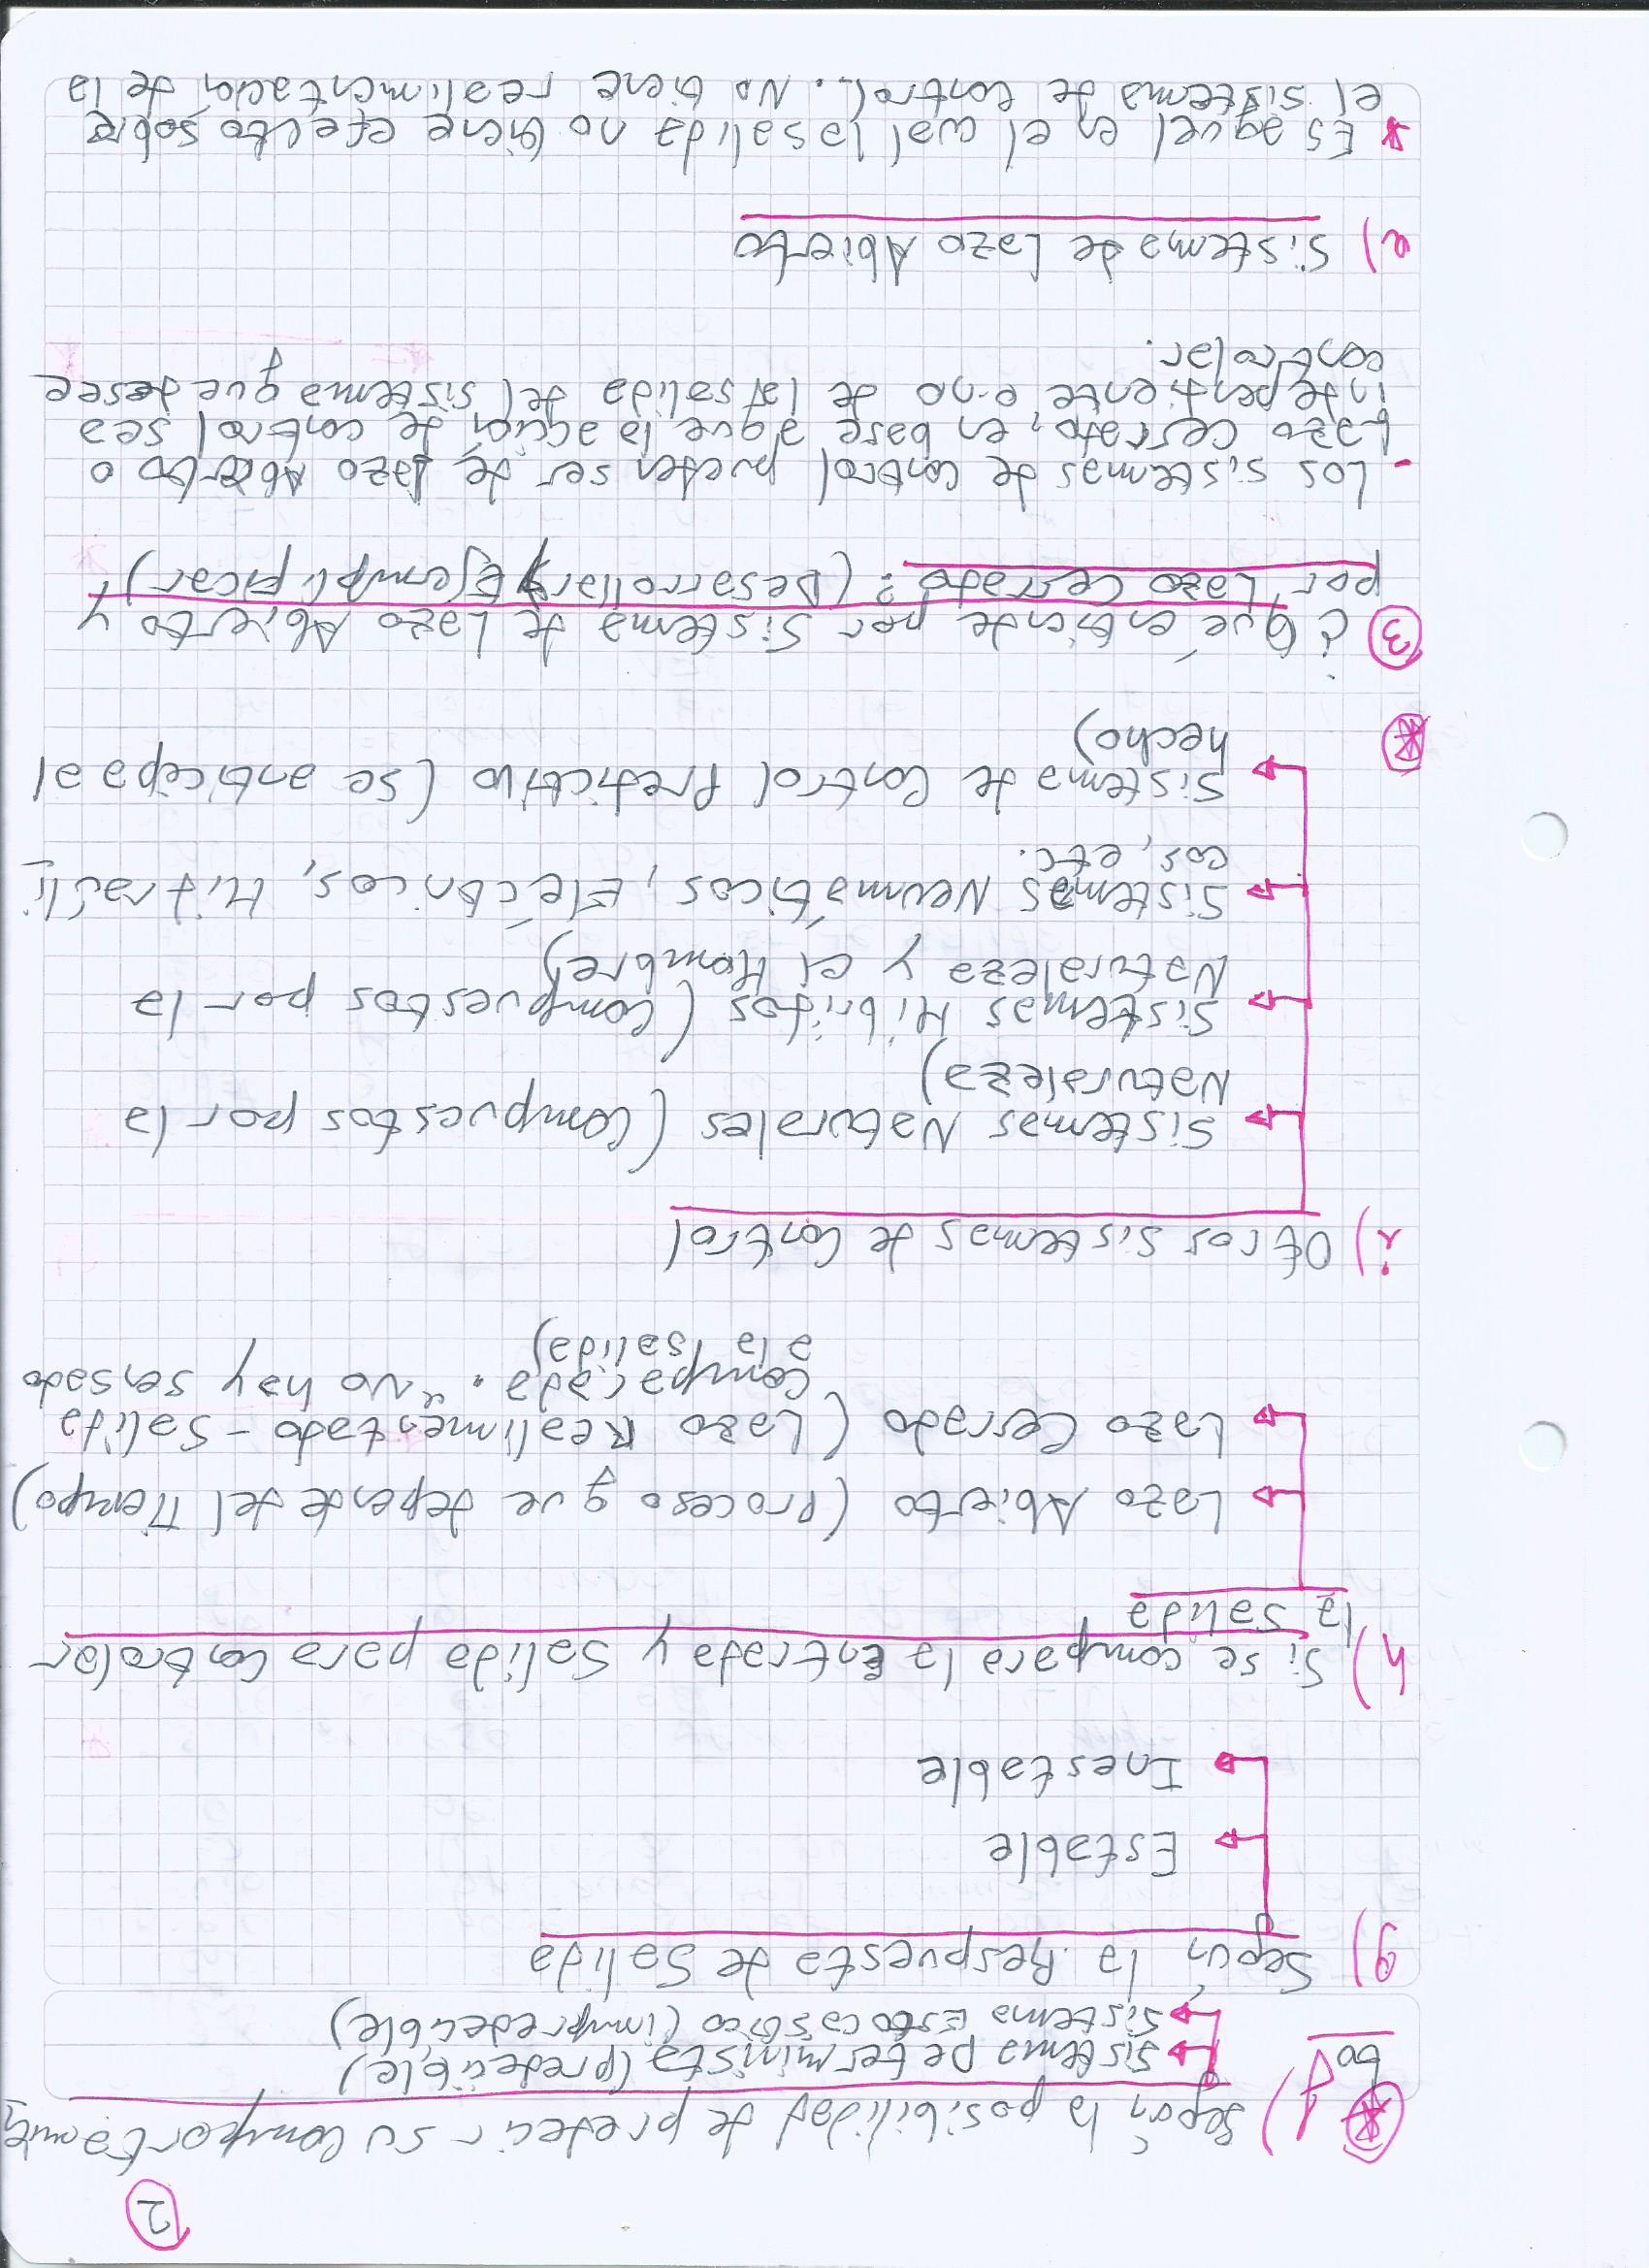 2
f) Según la posibilidad de predecir su comportamien
to
Sistema Determinista (predecible)
Sistema Estocástico (impredecible)
g) Según la Respuesta de Salida
Estable
Inestable
h) Si se compara la Entrada y Salida para Controlar
la Salida
Lazo Abierto (Proceso que depende del Tiempo)
Lazo Cerrado (Lazo Realimentado - Salida
Comparada. "No hay sensado
a la salida)
i) Otros Sistemas de Control
Sistemas Naturales (Compuestos por la
Naturaleza)
Sistemas Híbridos (Compuestos por la
Naturaleza y el Hombre)
Sistemas Neumáticos, Eléctricos, Hidraúli
cos, etc.
Sistema de Control Predictivo (se anticipa al
hecho)
3 ¿Qué entiende por Sistema de Lazo Abierto y
por Lazo Cerrado? (Desarrollar y Ejemplificar)
- Los sistemas de control pueden ser de lazo Abierto o
Lazo cerrado, en base a que la acción de control sea
independiente o no de la salida del sistema que desee
controlar.
a) Sistema de Lazo Abierto
* Es aquel en el cual la salida no tiene efecto sobre
el sistema de control. No tiene realimentación de la